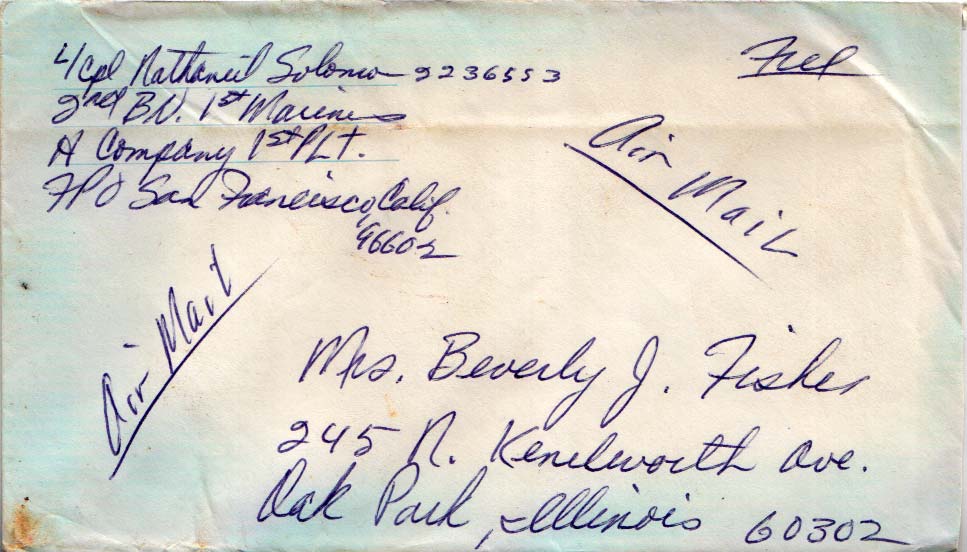 L/Cpl Nathaniel Solomon 2236553
2nd BN. 1st Marines
H Company 1st PLT.
FPO San Francisco, Calif.
96602
Free
Air Mail
Air Mail
Mrs. Beverly J. Fisher
245 N. Kenilworth Ave.
Oak Park, Illinois 60302